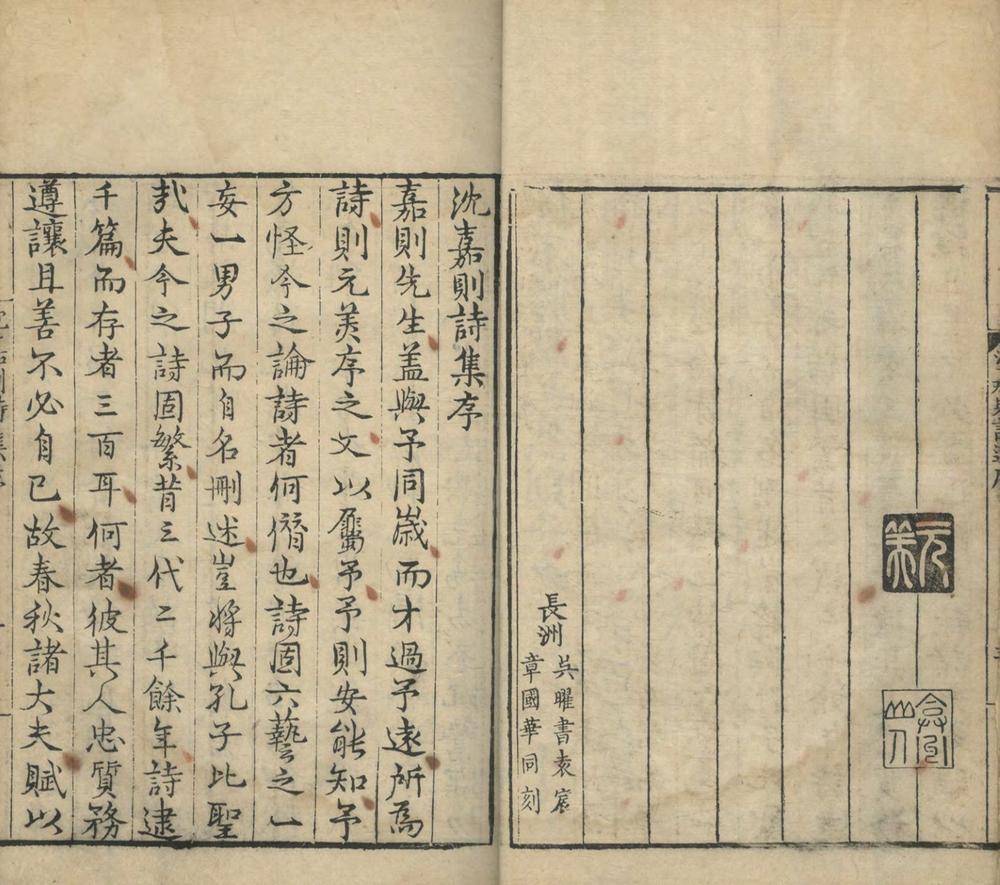 元美
弇州山人
長洲
吳曜書袁宸
章國華同刻
沈嘉則詩集序
嘉則先生蓋與予同歲而才過予遠所為
詩則元美序之文以屬予予則安能知予
方怪今之論詩者何僭也詩固六藝之一
妄一男子而自名刪述豈將與孔子比聖
哉夫今之詩固繁昔三代二千餘年詩逮
千篇而存者三百耳何者彼其人忠質務
遵讓且善不必自已故春秋諸大夫賦以